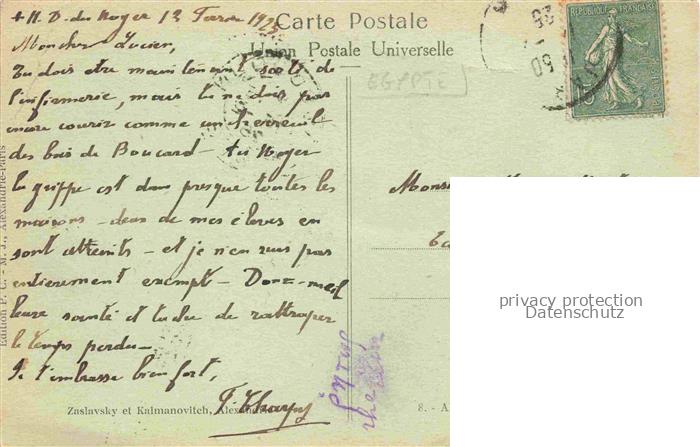 + N. D. du Noyer 12 Février 1925
Carte Postale
Mon cher Lucien,
Union Postale Universelle
Tu dois être maintenant sorti de
l'infirmerie, mais tu ne dois pas
encore courir comme un écureuil
des bois de Boucard - Au Noyer
la grippe est dans presque toutes les
maisons - deux de mes élèves en
sont atteints - et je n'en suis pas
entièrement exempt - Donc meil
leure santé et tâche de rattraper
le temps perdu -
Je t'embrasse bien fort,
EGYPTE
REPUBLIQUE FRANÇAISE
privacy protection
Datenschutz
Zaslavsky et Kalmanovitch, Alexandrie
8. - A
Edition P. C. - M. J., Alexandrie-Paris